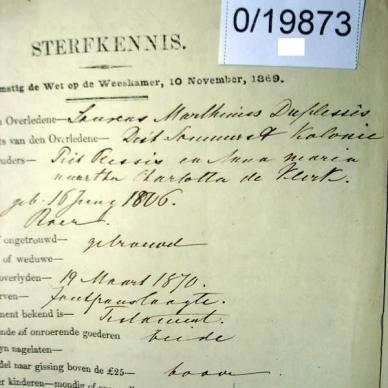 0/19873
STERFKENNIS.
mstig de Wet op de Weeskamer, 10 November, 1869.
n Overledene— Laurens Marthinus Duplessis
ts van den Overledene— Dist Sommerset Kolonie
uders— Piet Plessis en Anna maria
maartha Charlotta de Klerk.
geb. 16 Juny 1806.
Boer.
f ongetrouwd— getrouwd
of weduwe—
overlyden— 19 Maart 1870.
rven— Zoutpanslaagte.
ment bekend is— Testament.
nde of onroerende goederen beide
yn nagelaten—
del naar gissing boven de £25— boven
er kinderen—mondig of